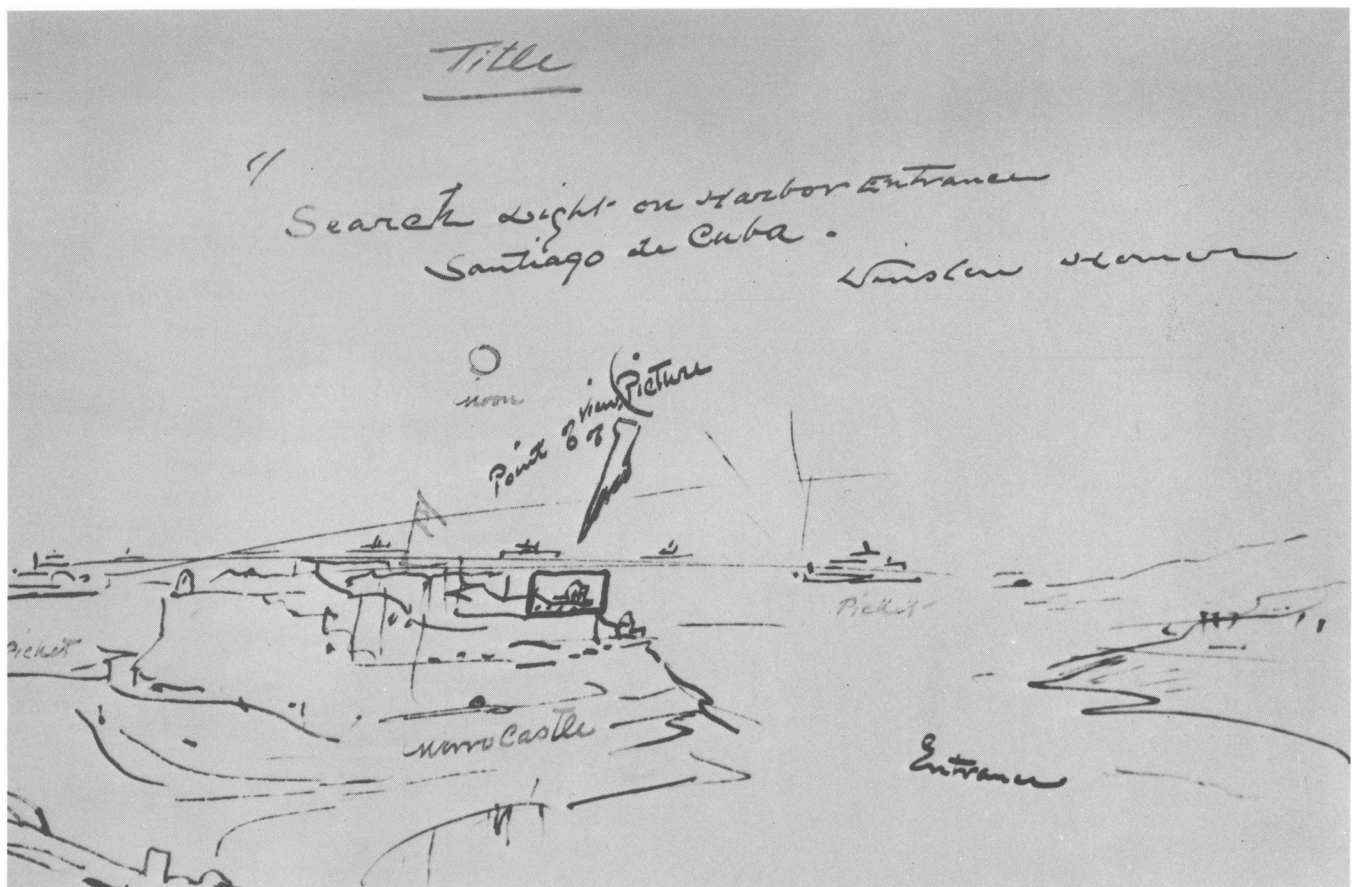 Title
"Search Light on Harbor Entrance
Santiago de Cuba.
Winslow Homer
moon
Point of view
of Picture
Picket
Picket
Morro Castle
Entrance